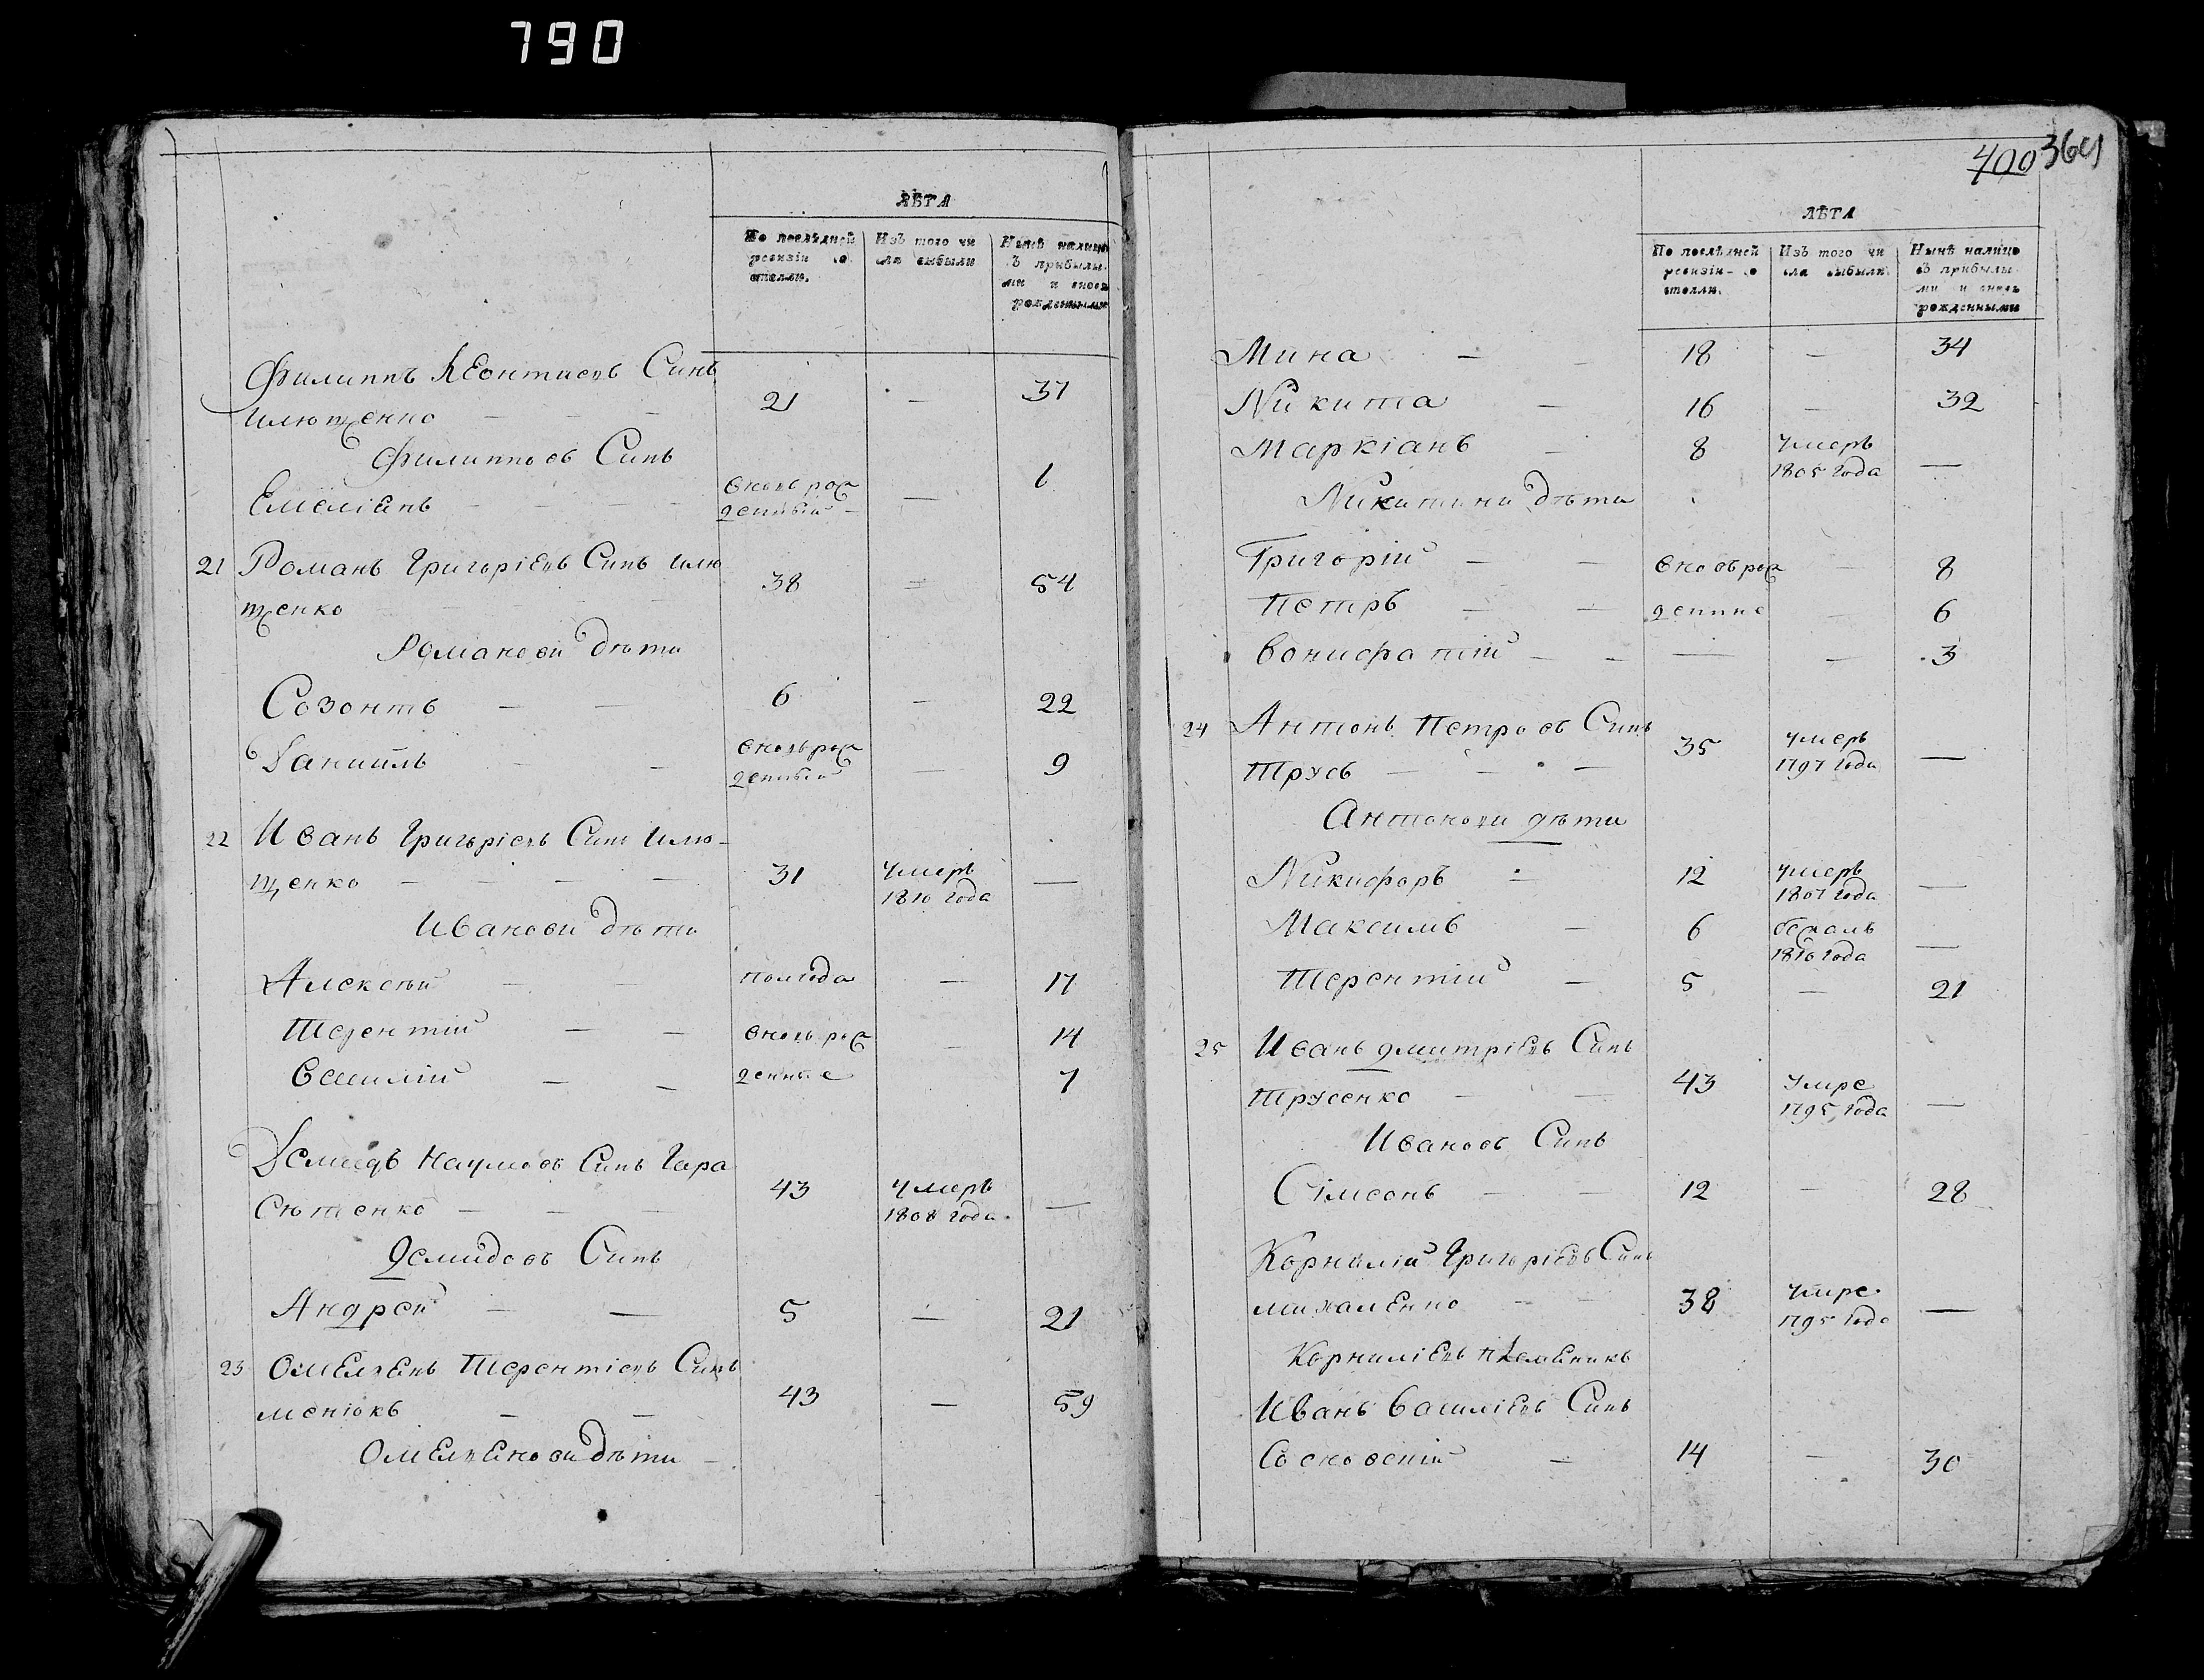 790
ЛѢТА
По послѣдней ревизіи состояли.
Изъ того числа выбыли
Нынѣ налицо съ прибылыми и вновь рожденными
Филиппъ Леонтиевъ Синъ
Илющенко — 21 — 37
Филиповъ Синъ
Емелїанъ — вновь рожденный — 1
21 Романъ Григорїевъ Синъ Илю
щенко — 38 — 54
Романови дѣти
Созонтъ — 6 — 22
Данїилъ — вновь рожденный — 9
22 Иванъ Григорїевъ Синъ Илю-
щенко — 31 умеръ 1810 года —
Иванови дѣти
Алексѣй — полгода — 17
Терентїй — вновь рож 14
Василїй — денные 7
Демидъ Наумовъ Синъ Гера
сютенко — 43 умеръ 1808 года —
Демидовъ Синъ
Андрей — 5 — 21
23 Омелянъ Терентїевъ Синъ
менюкъ — 43 — 59
Омелянови дѣти
400 364
ЛѢТА
По послѣдней ревизіи состояли.
Изъ того числа выбыли
Нынѣ налицо съ прибылыми и вновь рожденными
Мина — 18 — 34
Никита — 16 — 32
Маркїанъ — 8 умеръ 1805 года —
Никитини дѣти
Григорїй — вновь рож — 8
Петръ — денние — 6
Вонифатїй — — — 3
24 Антонъ Петровъ Синъ
Трусъ — 35 умеръ 1797 года —
Антонови дѣти
Никифоръ — 12 умеръ 1807 года —
Максимъ — 6 бежалъ 1810 года —
Терентїй — 5 — 21
25 Иванъ Дмитрїевъ Синъ
Трусенко — 43 умре 1795 года —
Ивановъ Синъ
Сїмеонъ — 12 — 28
Корнилїй Григорїевъ Синъ
михаленко — 38 умре 1795 года —
Корнилїевъ племеникъ
Иванъ Василїевъ Синъ
Сосновский — 14 — 30